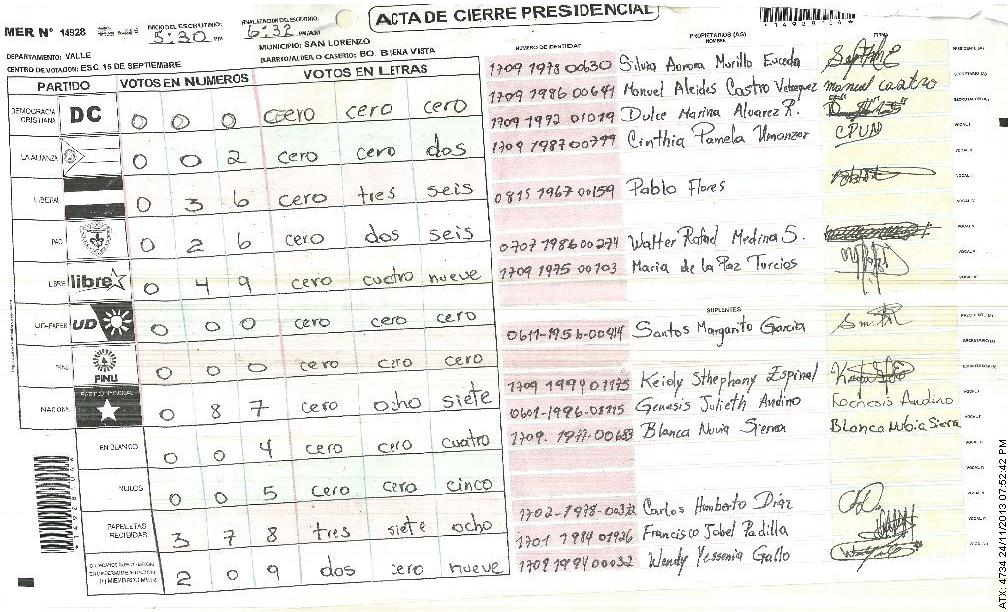 ACTA DE CIERRE PRESIDENCIAL
MER Nº 14928
INICIO DEL ESCRUTINIO: 5:30 PM
FINALIZACION DEL ESCRUTINIO: 6:32 PM/AM
DEPARTAMENTO: VALLE
MUNICIPIO: SAN LORENZO
CENTRO DE VOTACION: ESC. 15 DE SEPTIEMBRE
BARRIO/ALDEA O CASERIO: BO. BUENA VISTA
PARTIDO VOTOS EN NUMEROS VOTOS EN LETRAS
DEMOCRACIA CRISTIANA DC 0 0 0 cero cero cero
LA ALIANZA 0 0 2 cero cero dos
LIBERAL 0 3 6 cero tres seis
PAC 0 2 6 cero dos seis
LIBRE libre 0 4 9 cero cuatro nueve
UD-FAPER UD 0 0 0 cero cero cero
PINU PINU 0 0 0 cero cero cero
NACIONAL 0 8 7 cero ocho siete
EN BLANCO 0 0 4 cero cero cuatro
NULOS 0 0 5 cero cero cinco
PAPELETAS RECIBIDAS 3 7 8 tres siete ocho
2 0 9 dos cero nueve
NUMERO DE IDENTIDAD PROPIETARIOS (AS) NOMBRE FIRMA
1709 1978 00630 Silvia Aurora Murillo Euceda
1709 1986 00641 Manuel Aleides Castro Velasquez manuel castro
1709 1992 01019 Dulce Marina Alvarez R.
1709 1987 00799 Cinthia Pamela Umanzor CPUA
0815 1967 00159 Pablo Flores
0707 1986 00274 Walter Rafael Medina S.
1709 1975 00103 Maria de la Paz Turcios
SUPLENTES
0611-1956-00414 Santos Margarito Garcia
1709 1994 01175 Keidy Sthephany Espinal
0601-1996-08115 Genesis Julieth Andino
1709. 1977-00653 Blanca Nuvia Sierra Blanca Nubia Sierra
1702-1978-00332 Carlos Humberto Diaz
1701 1984 01926 Francisco Jobel Padilla
1709 1994 00032 Wendy Yessenia Gallo
*14928 04A*
ATX: 4734 24/11/2013 07:52:42 PM